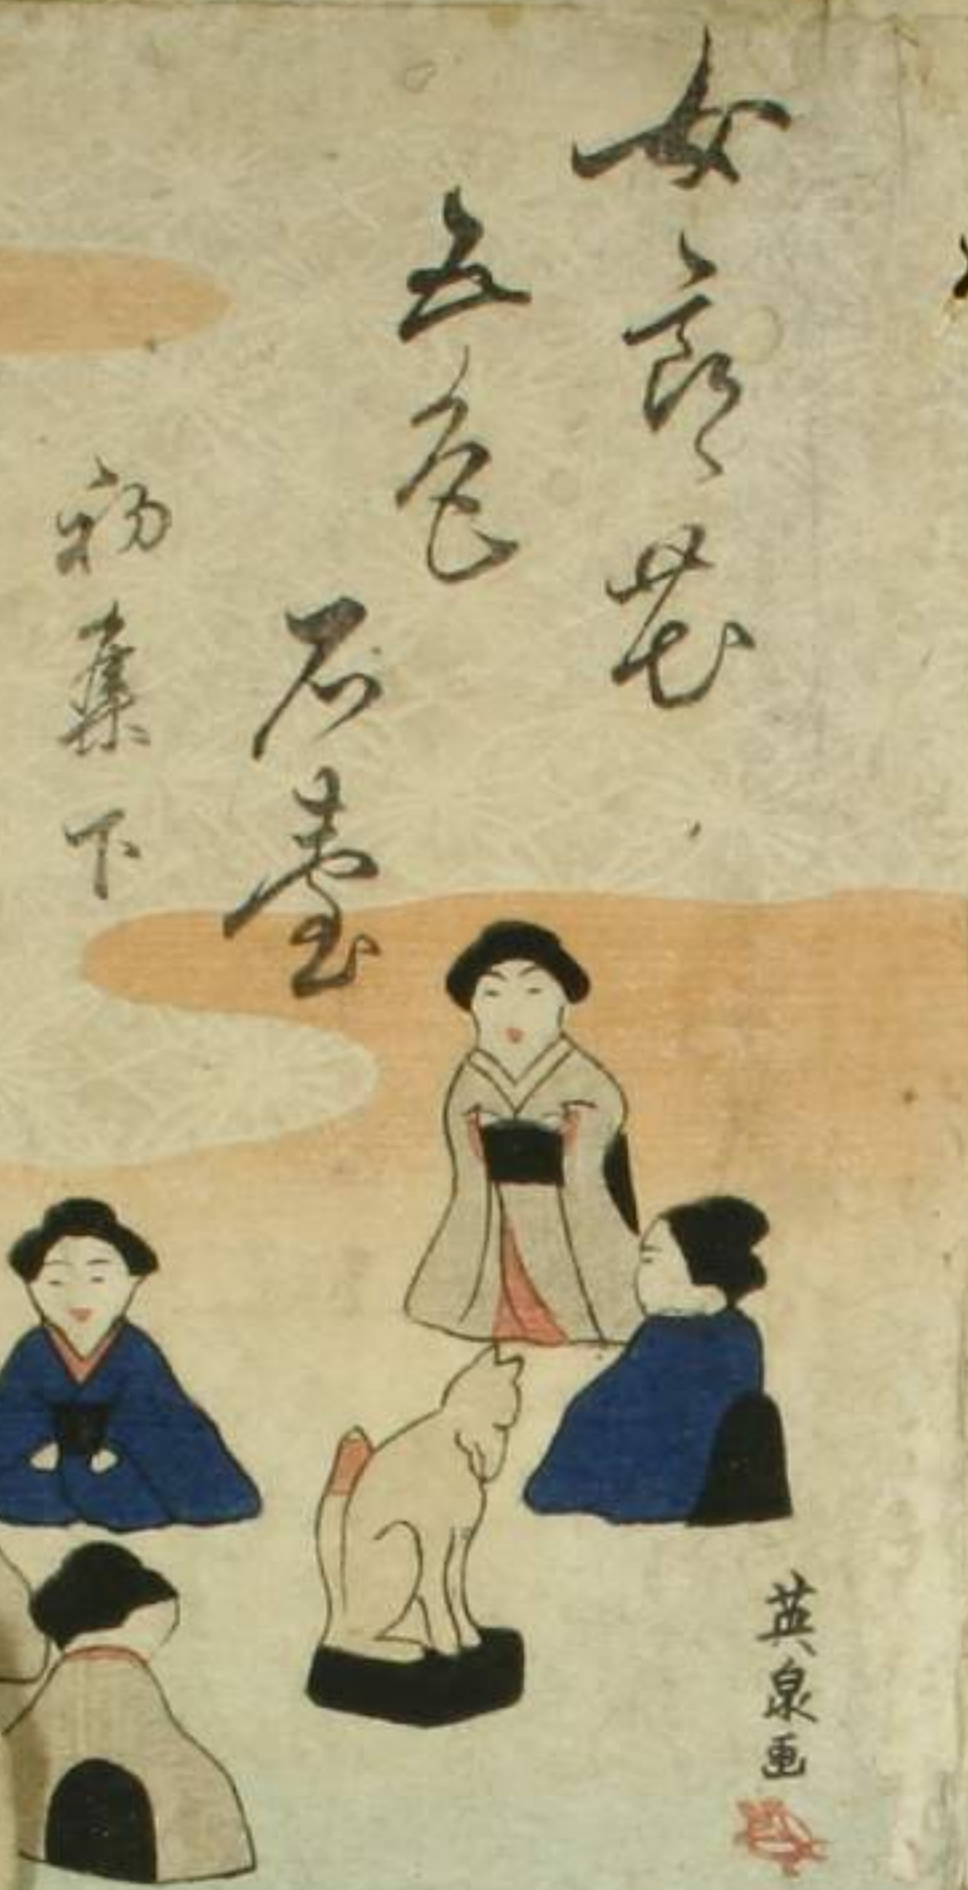 女郎花
五色
石臺
初集下
英泉画